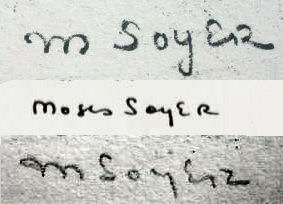 M Soyer
Moses Soyer
M Soyer